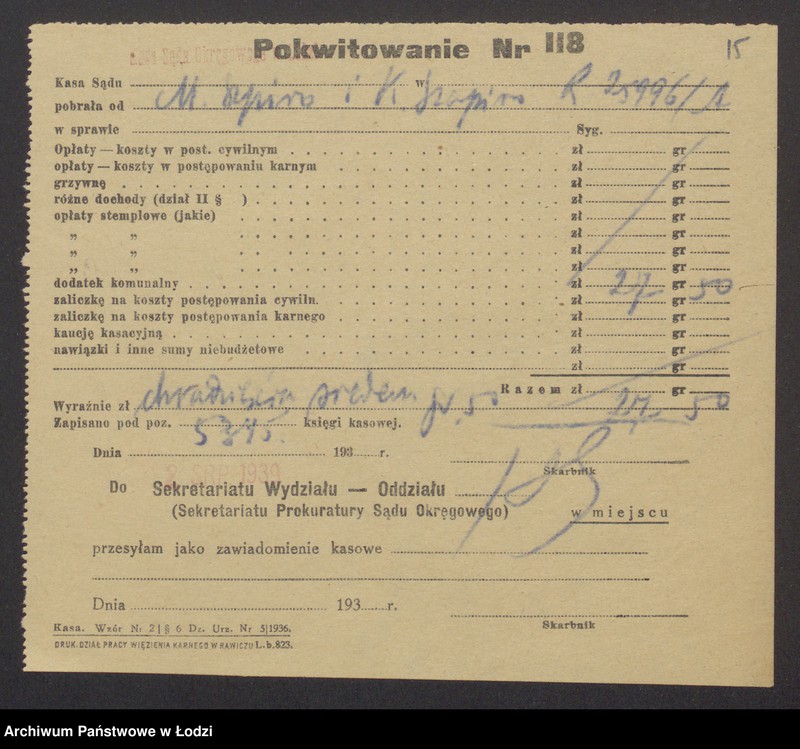 Pokwitowanie Nr 118
15
Kasa Sądu w
pobrała od M. Szpiro i K. Szapiro R 25996/1
w sprawie Syg.
Opłaty — koszty w post. cywilnym zł gr
opłaty — koszty w postępowaniu karnym zł gr
grzywnę zł gr
różne dochody (dział II § ) zł gr
opłaty stemplowe (jakie) zł gr
„ „ zł gr
„ „ zł gr
„ „ zł gr
dodatek komunalny zł gr
zaliczkę na koszty postępowania cywiln. zł 27 gr 50
zaliczkę na koszty postępowania karnego zł gr
kaucję kasacyjną zł gr
nawiązki i inne sumy niebudżetowe zł gr
zł gr
Razem zł gr
Wyraźnie zł dwadzieścia siedem gr. 50 27 50
Zapisano pod poz. 5345. księgi kasowej.
Dnia 193 r.
1939
Skarbnik
Do Sekretariatu Wydziału — Oddziału
(Sekretariatu Prokuratury Sądu Okręgowego) w miejscu
przesyłam jako zawiadomienie kasowe
Dnia 193 r.
Skarbnik
Kasa. Wzór Nr 2 | § 6 Dz. Urz. Nr 5|1936.
DRUK. DZIAŁ PRACY WIĘZIENIA KARNEGO W RAWICZU L. b. 823.
Archiwum Państwowe w Łodzi